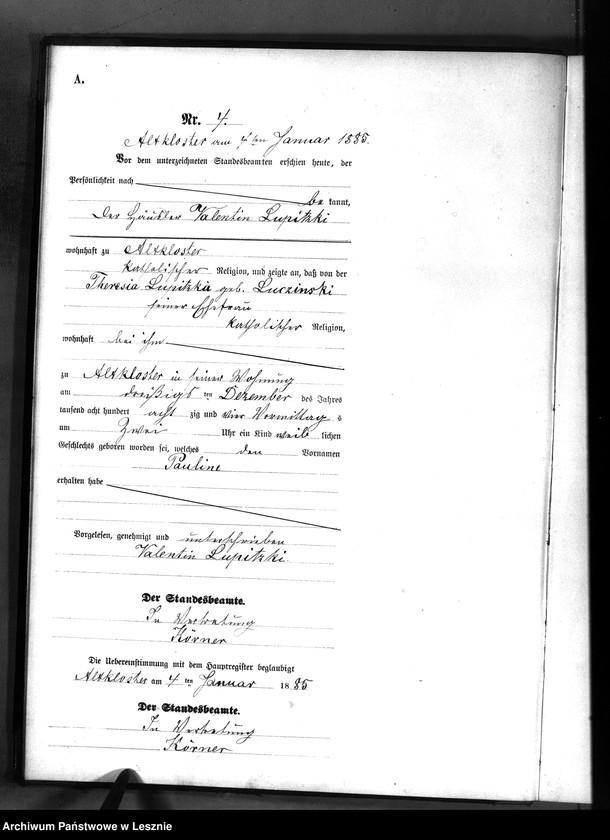 A.
Nr. 4.
Altkloster am 4ten Januar 1885.
Vor dem unterzeichneten Standesbeamten erschien heute, der
Persönlichkeit nach
be kannt,
der Häusler Valentin Lupitzki
wohnhaft zu Altkloster
katholischer Religion, und zeigte an, daß von der
Theresia Lupitzka geb. Luczinski
seiner Ehefrau
katholischer Religion,
wohnhaft bei ihm
zu Altkloster in seiner Wohnung
am dreißigs ten Dezember des Jahres
tausend acht hundert acht zig und vier Vormittag s
um Zwei Uhr ein Kind weib lichen
Geschlechts geboren worden sei, welches den Vornamen
Pauline
erhalten habe
Vorgelesen, genehmigt und unterschrieben
Valentin Lupitzki.
Der Standesbeamte.
In Vertretung
Körner
Die Uebereinstimmung mit dem Hauptregister beglaubigt
Altkloster am 4ten Januar 1885
Der Standesbeamte.
In Vertretung
Körner
Archiwum Państwowe w Lesznie